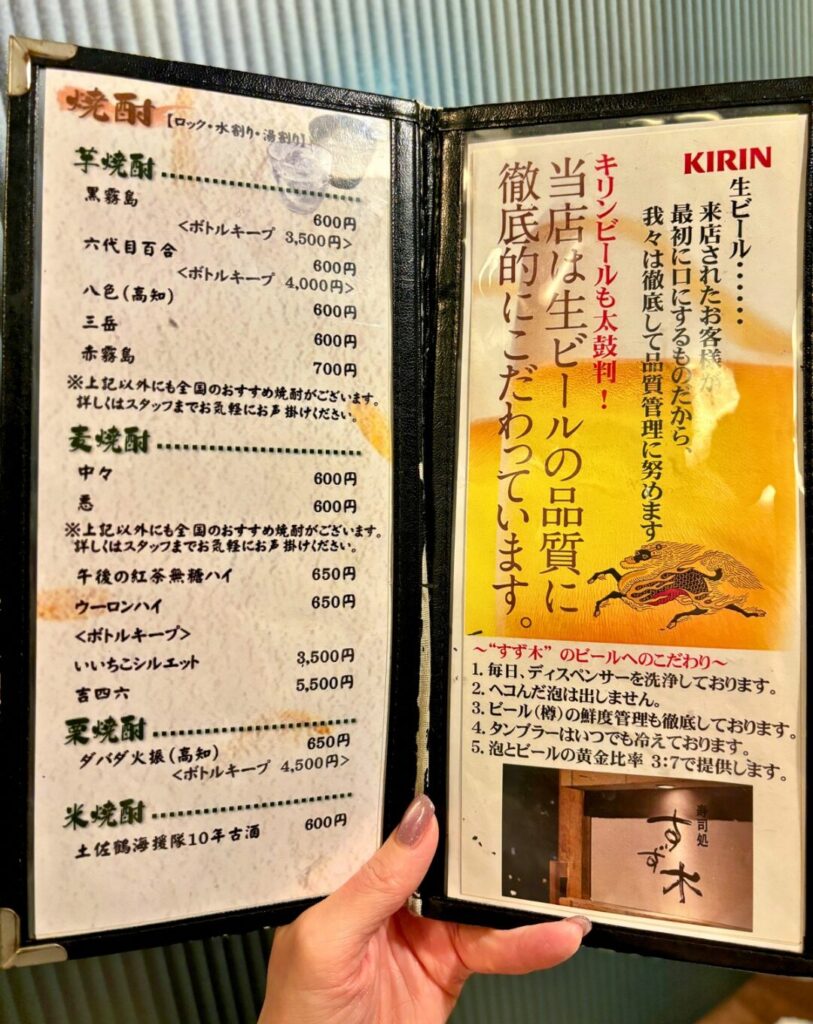 焼酎
【ロック・水割り・湯割り】
芋焼酎
黒霧島 600円
<ボトルキープ 3,500円>
六代目百合 600円
<ボトルキープ 4,000円>
八色(高知) 600円
三岳 600円
赤霧島 700円
※上記以外にも全国のおすすめ焼酎がございます。
詳しくはスタッフまでお気軽にお声掛けください。
麦焼酎
中々 600円
悪 600円
※上記以外にも全国のおすすめ焼酎がございます。
詳しくはスタッフまでお気軽にお声掛けください。
午後の紅茶無糖ハイ 650円
ウーロンハイ 650円
<ボトルキープ>
いいちこシルエット 3,500円
吉四六 5,500円
栗焼酎
ダバダ火振(高知) 650円
<ボトルキープ 4,500円>
米焼酎
土佐鶴海援隊10年古酒 600円
KIRIN
生ビール・・・・・・
来店されたお客様が、
最初に口にするものだから、
我々は徹底して品質管理に努めます
キリンビールも太鼓判!
当店は生ビールの品質に
徹底的にこだわっています。
～“すず木”のビールへのこだわり～
1. 毎日、ディスペンサーを洗浄しております。
2. ヘコんだ泡は出しません。
3. ビール(樽)の鮮度管理も徹底しております。
4. タンブラーはいつでも冷えております。
5. 泡とビールの黄金比率 3:7で提供します。
寿司処
すず木